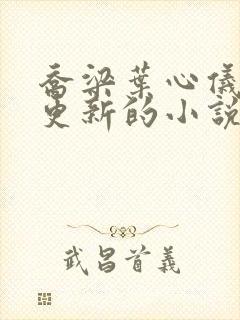 喬梁葉心儀
更新的小說
武昌首義